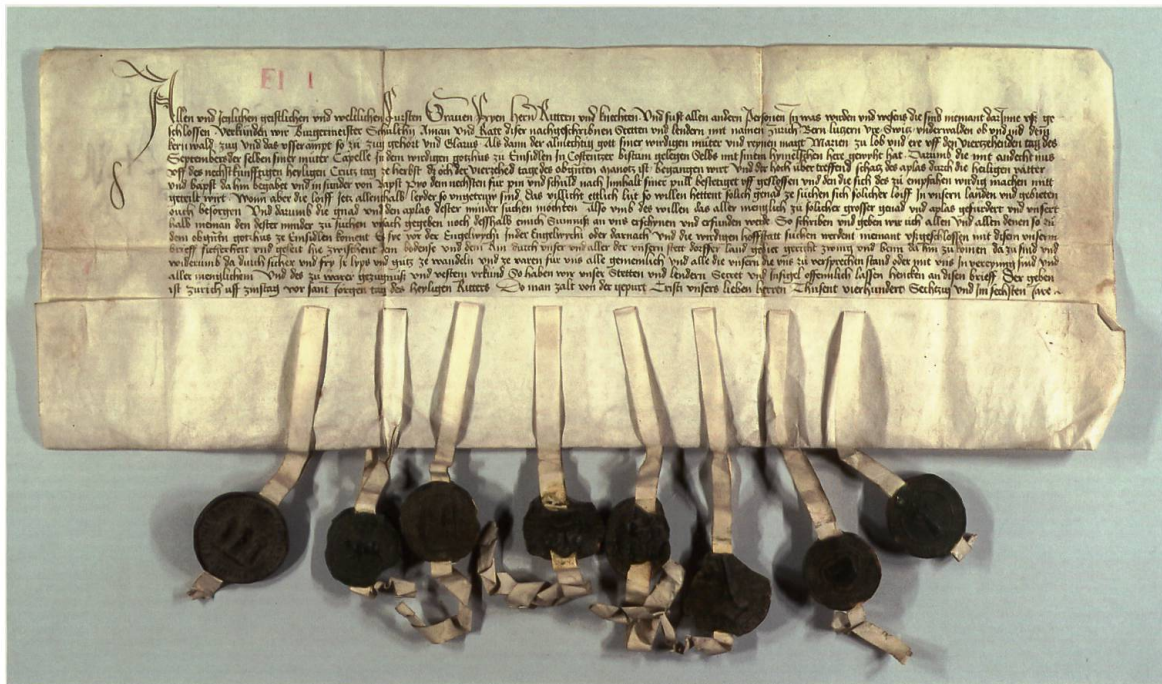 E I 1
Allen und jeglichen geistlichen und weltlichen Fursten Graven Fryen Hern Rittern und knechten Und sust allen andern Personen In was wirden und wesens die sind niemant dar Inne uß ge
schlossen Verkünden wir Burgermeister Schulthß Aman Und Rätte diser nachgeschribnen Stetten und lendern mit namen Zürich Bern Lutzern Ure Switz underwalden ob und nid dem
kernwald zug und das usser ampt so zü zug gehört und Glarus Als dann der almechtig gott siner wirdigen müter und reynen magt Marien zü lob und ere uff den vierzehenden tag des
Septembers der selben siner müter Capelle In dem wirdigen gotzhus zü Einsidlen In Costentzer bistum gelegen Selbs mit sinem hymelschen here gewyht hat Darumb die mit andacht nuo
uff des nechstkunfftigen heyligen Crütz tag ze herbst der vierzehend tag des obgnten manotz ist begangen wirt Und der hoch über treffend schatz des aplas durch die heiligen vätter
und bäpst da hin begabet und in sunder von bapst Pyo dem nechsten für pin und schuld nach Innhalt siner bull bestetiget uff geslossen und den die sich des zü empfahen wirdig machen mitt
geteilt wirt Wann aber die löiff jetz allenthalb leyder so ungetrüw sind Das villicht ettlich lüt so willen hettent solich gnad ze süchen sich solicher löiff In unsern landen und gebieten
ouch besorgen Und darumb die gnad und den aplas dester minder süchen möchten Also umb des willen das aller menglich zü solicher grosser gnad und aplas gefürdert und unsert
halb nieman den dester minder zü süchen ursach gegeben noch desshalb einich Sumniß an uns erschynen und erfunden werde So schriben und geben wir üch allen und allen denen so zü
dem obgnten gotzhus ze Einsidlen koment Es sye vor der Engelwychi In der Engelwychi oder darnach Und die wirdigen hoffstatt süchen werdent niemant ußgeschlossen mit disem unserm
brieff sicherheit und geleit hie zwischent dem bodense und dem Rin durch unser und aller der unsern stett dörffer land gebiet gericht zwing und benn da hin zü komen da zü sind und
widerumb da durch sicher und fry Ir lybs und gütz ze wandeln und ze varen für uns alle gemeinlich und alle die unsern die uns zü versprechen stand oder mit uns In vereynung sind und
aller menglichem Und des zü warer gezügnuß und vestem urkünd So haben wir unser Stetten und lendern Secret und Insigel offennlich lassen hencken an disen brieff Der geben
ist Zürich uff zinstag vor sant Jörgen tag des heyligen Ritters Do man zalt von der gepurt Cristi unsers lieben herren Thusent vierhundert Sechtzig und Im sechsten Jare